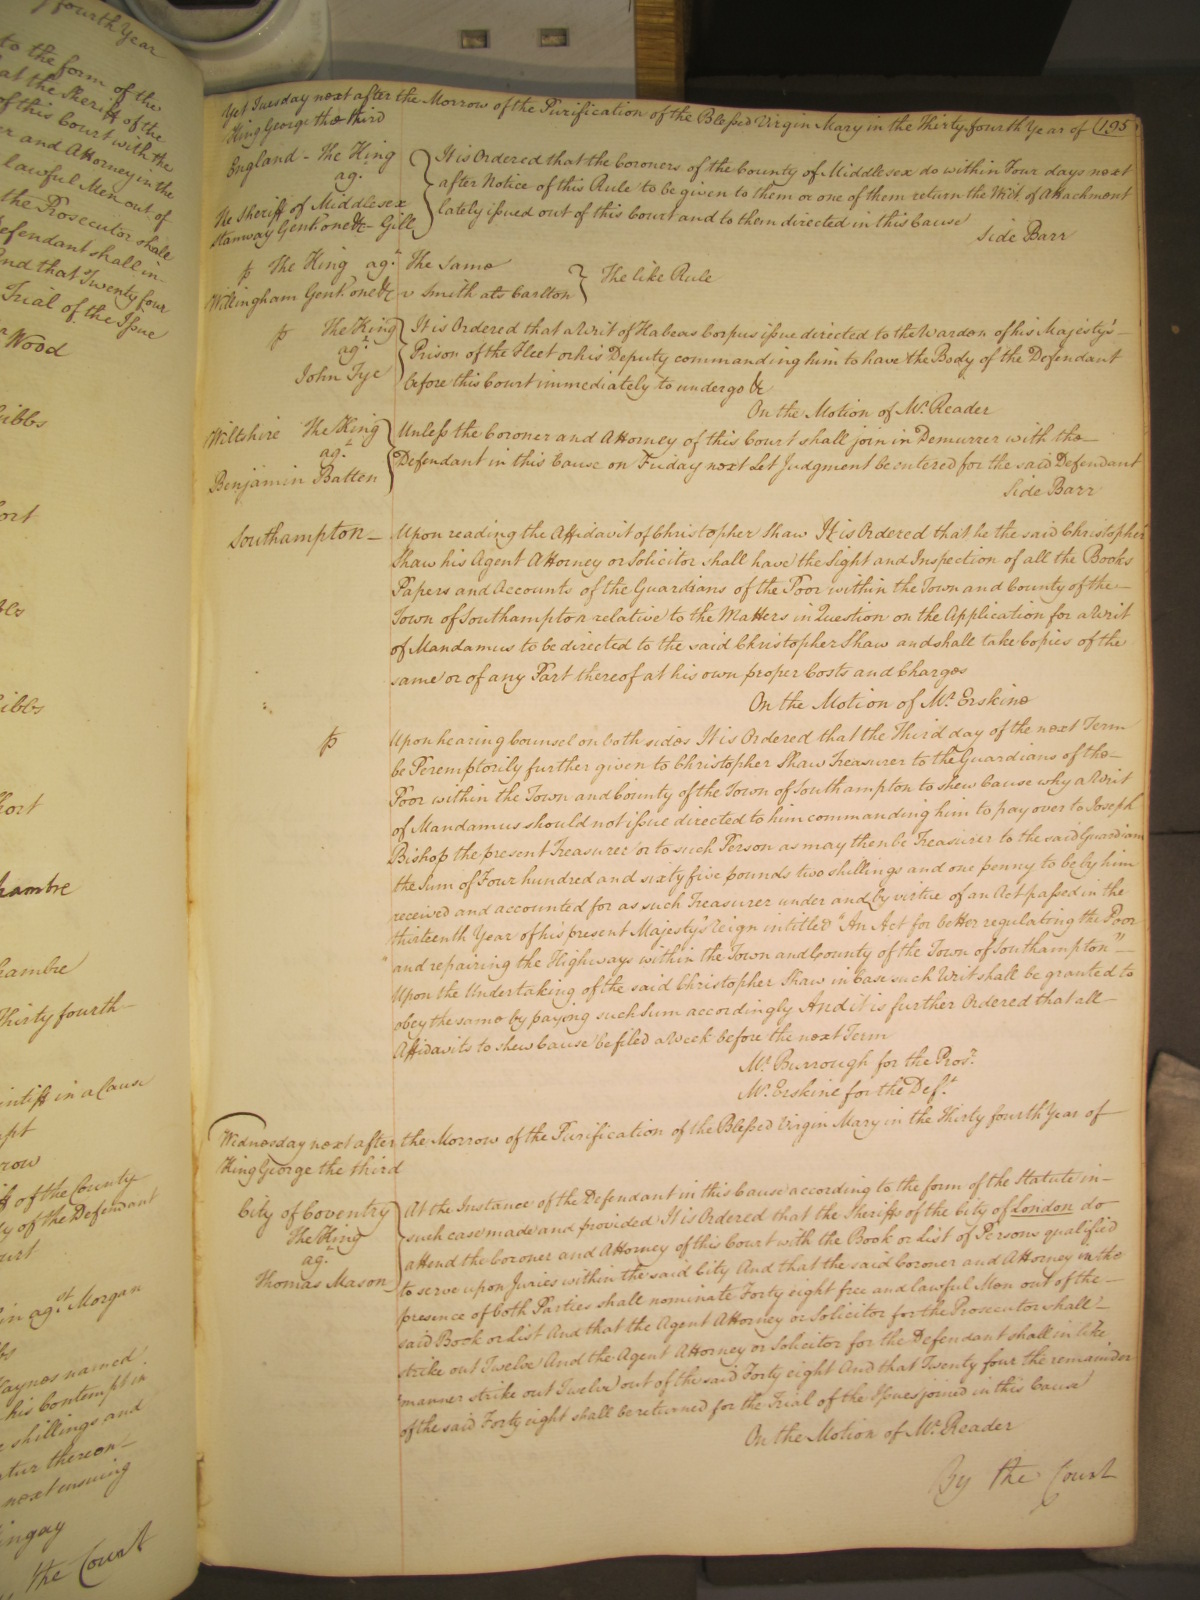 fourth Year
to the form of the
at the Sheriff of the
of this Court with the
er and Attorney in the
lawful Men out of
the Prosecutor shall
efendant shall in
nd that Twenty four
Trial of the Ifsue
Wood
ibbs
ort
ibbs
hort
hambre
hambre
Thirty fourth
intiff in a Cause
row
ff of the County
y of the Defendant
ourt
in agst. Morgan
aynes named
his Contempt in
e shillings and
atur thereon
next ensuing
ingay
the Court
Yet Tuesday next after the Morrow of the Purification of the Blefsed Virgin Mary in the Thirty fourth Year of 195
King George the third
England - The King
agt.
The Sheriff of Middlesex
Stanway Gent. one &c - Gill
It is Ordered that the Coroners of the County of Middlesex do within Four days next
after Notice of this Rule to be given to them or one of them return the Writ of Attachment
lately ifsued out of this Court and to them directed in this Cause
Side Barr
The King agt. The Same
Willingham Gent. one &c v Smith ats Carlton
The like Rule
The King
agt.
John Tye
It is Ordered that a Writ of Habeas Corpus ifsue directed to the Warden of his Majesty's
Prison of the Fleet or his Deputy commanding him to have the Body of the Defendant
before this Court immediately to undergo &c
On the Motion of Mr. Reader
Wiltshire The King
agt.
Benjamin Batten
Unlefs the Coroner and Attorney of this Court shall join in Demurrer with the
Defendant in this Cause on Friday next Let Judgment be entered for the said Defendant
Side Barr
Southampton
Upon reading the Affidavit of Christopher Shaw It is Ordered that he the said Christopher
Shaw his Agent Attorney or Solicitor shall have the Sight and Inspection of all the Books
Papers and Accounts of the Guardians of the Poor within the Town and County of the
Town of Southampton relative to the Matters in Question on the Application for a Writ
of Mandamus to be directed to the said Christopher Shaw and shall take Copies of the
same or of any Part thereof at his own proper Costs and Charges
On the Motion of Mr. Erskine
Upon hearing Counsel on both sides It is Ordered that the Third day of the next Term
be Peremptorily further given to Christopher Shaw Treasurer to the Guardians of the
Poor within the Town and County of the Town of Southampton to shew Cause why a Writ
of Mandamus should not ifsue directed to him commanding him to pay over to Joseph
Bishop the present Treasurer or to such Person as may then be Treasurer to the said Guardians
the Sum of Four hundred and sixty five pounds two shillings and one penny to be by him
received and accounted for as such Treasurer under and by virtue of an Act pafsed in the
thirteenth Year of his present Majesty's reign intitled "An Act for better regulating the Poor
" and repairing the Highways within the Town and County of the Town of Southampton"
Upon the Undertaking of the said Christopher Shaw in Case such Writ shall be granted to
obey the same by paying such Sum accordingly And it is further Ordered that all
Affidavits to shew Cause be filed a Week before the next Term
Mr. Burrough for the Pros.
Mr. Erskine for the Deft.
Wednesday next after the Morrow of the Purification of the Blefsed Virgin Mary in the Thirty fourth Year of
King George the third
City of Coventry
The King
agt.
Thomas Mason
At the Instance of the Defendant in this Cause according to the form of the Statute in
such case made and provided It is Ordered that the Sheriffs of the City of London do
attend the Coroner and Attorney of this Court with the Book or List of Persons qualified
to serve upon Juries within the said City And that the said Coroner and Attorney in the
presence of both Parties shall nominate Forty eight free and lawful Men out of the
said Book or List And that the Agent Attorney or Solicitor for the Prosecutor shall
strike out Twelve And the Agent Attorney or Solicitor for the Defendant shall in like
manner strike out Twelve out of the said Forty eight And that Twenty four the remainder
of the said Forty eight shall be returned for the Trial of the Ifsues joined in this Cause
On the Motion of Mr. Reader
By the Court